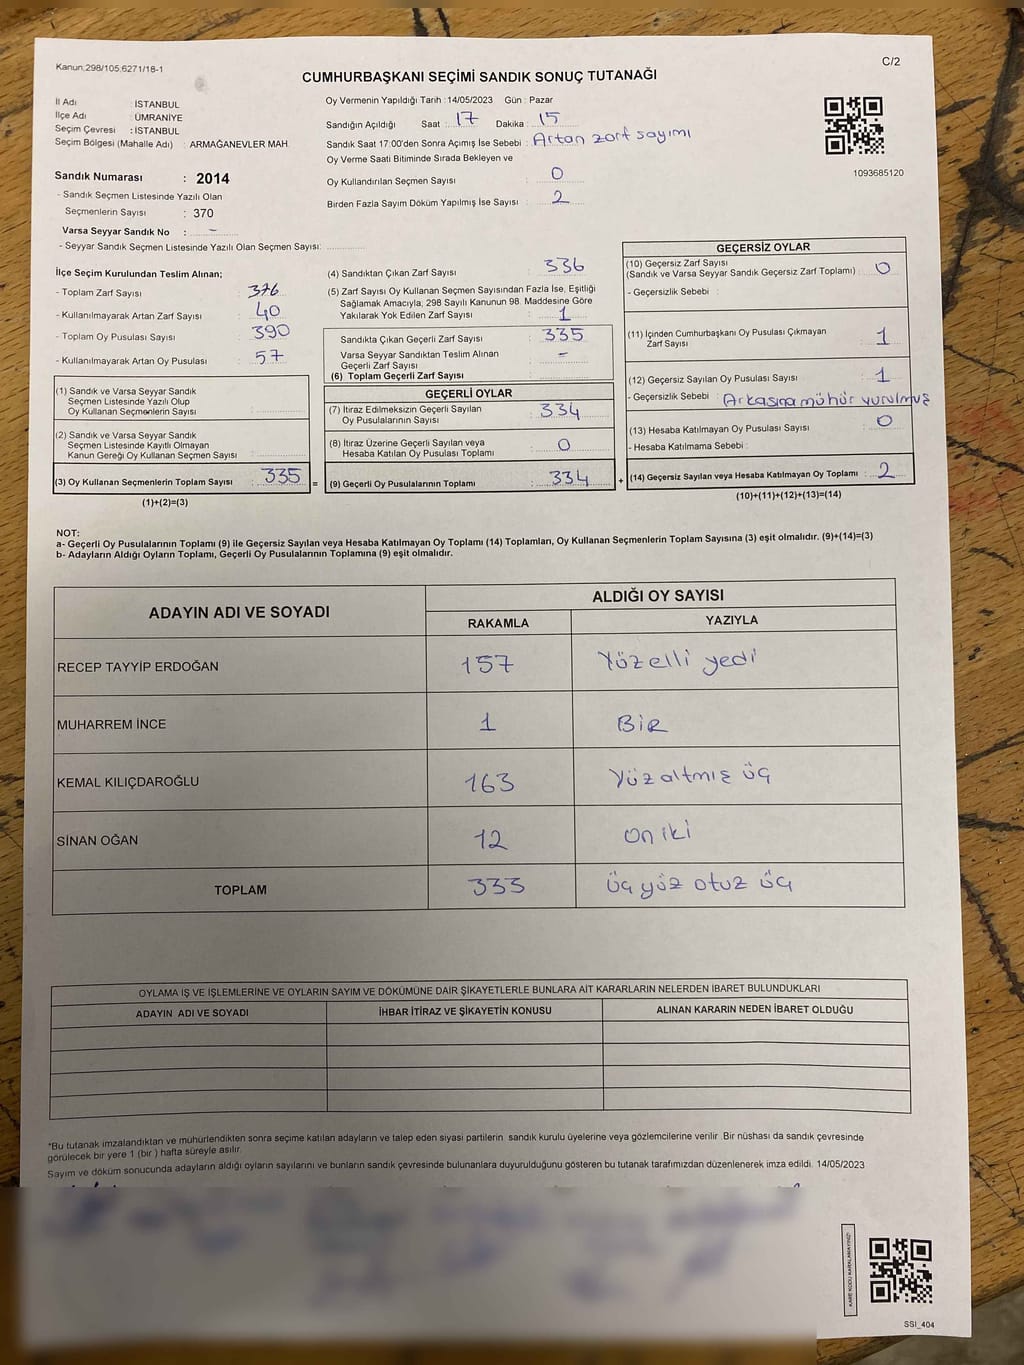 Kanun.298/105,6271/18-1
C/2
CUMHURBAŞKANI SEÇİMİ SANDIK SONUÇ TUTANAĞI
İl Adı : İSTANBUL
İlçe Adı : ÜMRANİYE
Seçim Çevresi : İSTANBUL
Seçim Bölgesi (Mahalle Adı) : ARMAĞANEVLER MAH.
Sandık Numarası : 2014
- Sandık Seçmen Listesinde Yazılı Olan
Seçmenlerin Sayısı : 370
Varsa Seyyar Sandık No : -
- Seyyar Sandık Seçmen Listesinde Yazılı Olan Seçmen Sayısı:
Oy Vermenin Yapıldığı Tarih : 14/05/2023 Gün : Pazar
Sandığın Açıldığı Saat : 17 Dakika : 15
Sandık Saat 17:00'den Sonra Açımış İse Sebebi : Artan zarf sayımı
Oy Verme Saati Bitiminde Sırada Bekleyen ve
Oy Kullandırılan Seçmen Sayısı : 0
Birden Fazla Sayım Döküm Yapılmış İse Sayısı : 2
1093685120
İlçe Seçim Kurulundan Teslim Alınan;
- Toplam Zarf Sayısı : 376
- Kullanılmayarak Artan Zarf Sayısı : 40
- Toplam Oy Pusulası Sayısı : 390
- Kullanılmayarak Artan Oy Pusulası : 57
(1) Sandık ve Varsa Seyyar Sandık
Seçmen Listesinde Yazılı Olup
Oy Kullanan Seçmenlerin Sayısı :
(2) Sandık ve Varsa Seyyar Sandık
Seçmen Listesinde Kayıtlı Olmayan
Kanun Gereği Oy Kullanan Seçmen Sayısı :
(3) Oy Kullanan Seçmenlerin Toplam Sayısı : 335 =
(1)+(2)=(3)
(4) Sandıktan Çıkan Zarf Sayısı : 336
(5) Zarf Sayısı Oy Kullanan Seçmen Sayısından Fazla İse, Eşitliği
Sağlamak Amacıyla, 298 Sayılı Kanunun 98. Maddesine Göre
Yakılarak Yok Edilen Zarf Sayısı : 1
Sandıkta Çıkan Geçerli Zarf Sayısı : 335
Varsa Seyyar Sandıktan Teslim Alınan
Geçerli Zarf Sayısı : -
(6) Toplam Geçerli Zarf Sayısı :
GEÇERLİ OYLAR
(7) İtiraz Edilmeksizin Geçerli Sayılan
Oy Pusulalarının Sayısı : 334
(8) İtiraz Üzerine Geçerli Sayılan veya
Hesaba Katılan Oy Pusulası Toplamı : 0
(9) Geçerli Oy Pusulalarının Toplamı : 334 +
GEÇERSİZ OYLAR
(10) Geçersiz Zarf Sayısı
(Sandık ve Varsa Seyyar Sandık Geçersiz Zarf Toplamı) : 0
- Geçersizlik Sebebi :
(11) İçinden Cumhurbaşkanı Oy Pusulası Çıkmayan
Zarf Sayısı : 1
(12) Geçersiz Sayılan Oy Pusulası Sayısı : 1
- Geçersizlik Sebebi : Arkasına mühür vurulmuş
(13) Hesaba Katılmayan Oy Pusulası Sayısı : 0
- Hesaba Katılmama Sebebi :
(14) Geçersiz Sayılan veya Hesaba Katılmayan Oy Toplamı : 2
(10)+(11)+(12)+(13)=(14)
NOT:
a- Geçerli Oy Pusulalarının Toplamı (9) ile Geçersiz Sayılan veya Hesaba Katılmayan Oy Toplamı (14) Toplamları, Oy Kullanan Seçmenlerin Toplam Sayısına (3) eşit olmalıdır. (9)+(14)=(3)
b- Adayların Aldığı Oyların Toplamı, Geçerli Oy Pusulalarının Toplamına (9) eşit olmalıdır.
ADAYIN ADI VE SOYADI
ALDIĞI OY SAYISI
RAKAMLA YAZIYLA
RECEP TAYYİP ERDOĞAN 157 Yüz elli yedi
MUHARREM İNCE 1 BİR
KEMAL KILIÇDAROĞLU 163 Yüz altmış üç
SİNAN OĞAN 12 on iki
TOPLAM 333 üç yüz otuz üç
OYLAMA İŞ VE İŞLEMLERİNE VE OYLARIN SAYIM VE DÖKÜMÜNE DAİR ŞİKAYETLERLE BUNLARA AİT KARARLARIN NELERDEN İBARET BULUNDUKLARI
ADAYIN ADI VE SOYADI İHBAR İTİRAZ VE ŞİKAYETİN KONUSU ALINAN KARARIN NEDEN İBARET OLDUĞU
*Bu tutanak imzalandıktan ve mühürlendikten sonra seçime katılan adayların ve talep eden siyasi partilerin sandık kurulu üyelerine veya gözlemcilerine verilir. Bir nüshası da sandık çevresinde
görülecek bir yere 1 (bir ) hafta süreyle asılır.
Sayım ve döküm sonucunda adayların aldığı oyların sayılarını ve bunların sandık çevresinde bulunanlara duyurulduğunu gösteren bu tutanak tarafımızdan düzenlenerek imza edildi. 14/05/2023
KARE KODU KARALAMAYINIZ!
SSI_404